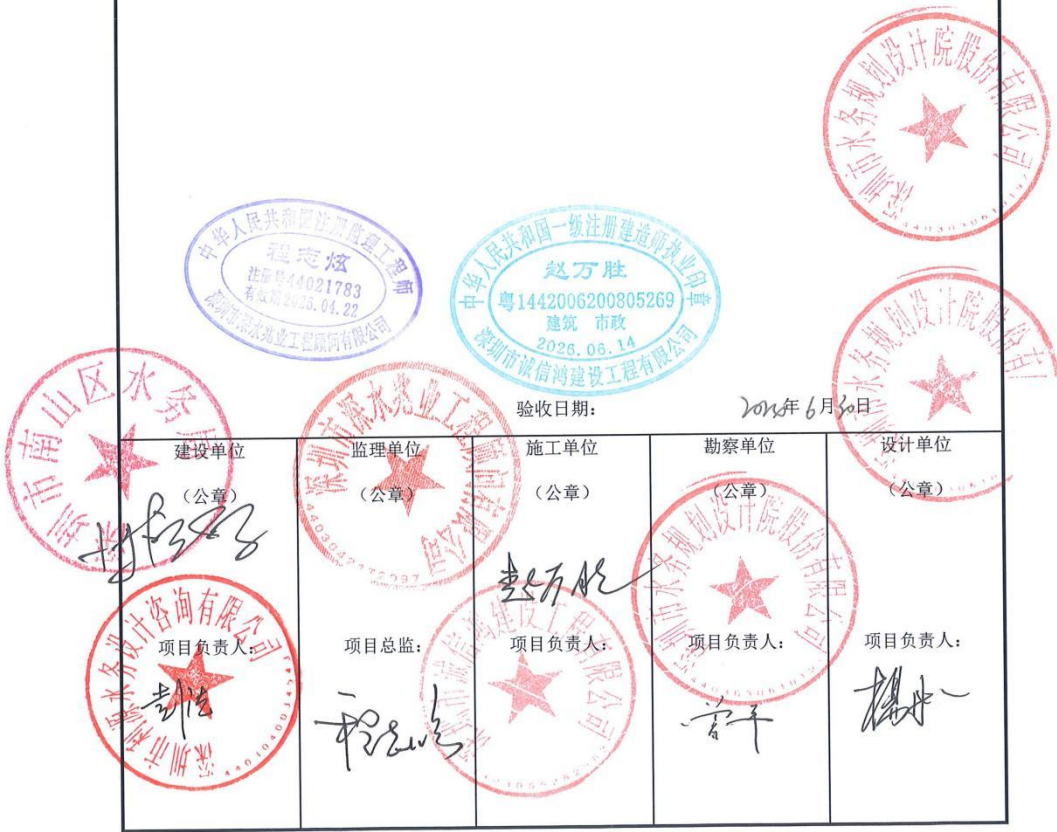 深圳市水务规划设计院股份有限公司
中华人民共和国注册监理工程师
程志炫
注册号44021783
有效期2026.04.22
深圳市深水兆业工程顾问有限公司
中华人民共和国一级注册建造师执业印章
赵万胜
粤1442006200805269
建筑 市政
2026.06.14
深圳市诚信鸿建设工程有限公司
深圳市水务规划设计院股份有限公司
验收日期: 年6月30日
深圳市南山区水务局
深圳市深水兆业工程顾问有限公司
建设单位 监理单位 施工单位 勘察单位 设计单位
(公章) (公章) (公章) (公章) (公章)
深圳市水务规划设计院股份有限公司
赵万胜
深圳市利源水务设计咨询有限公司
深圳市诚信鸿建设工程有限公司
项目负责人: 项目总监: 项目负责人: 项目负责人: 项目负责人:
程志炫